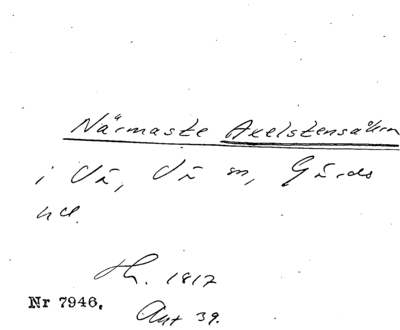 Närmaste Axelstensåkern
i Vä, Vä sn, Gärds
hd.
Th. 1812
Nr 7946. Akt 39.